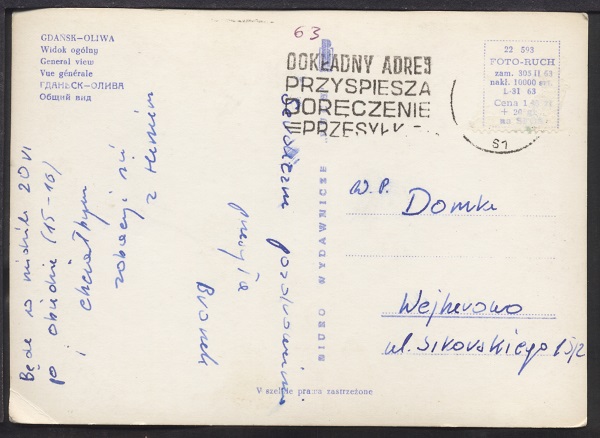 63
GDAŃSK—OLIWA
Widok ogólny
General view
Vue générale
ГДАНЬСК—ОЛИВА
Общий вид
DOKŁADNY ADRES
PRZYSPIESZA
DORĘCZENIE
PRZESYŁ
22 593
FOTO-RUCH
zam. 305 II 63
nakł. 10000 egz.
L-31 63
Cena 1
+ 20
na
Serdeczne pozdrowienia
przesyła
Bronek
Będę w niedzielę 20 VI
po obiedzie (15-16)
i chciałbym
zobaczyć się
z
BIURO WYDAWNICZE
W.P. Domke
Wejherowo
ul. Sikorskiego 15/2
Wszelkie prawa zastrzeżone